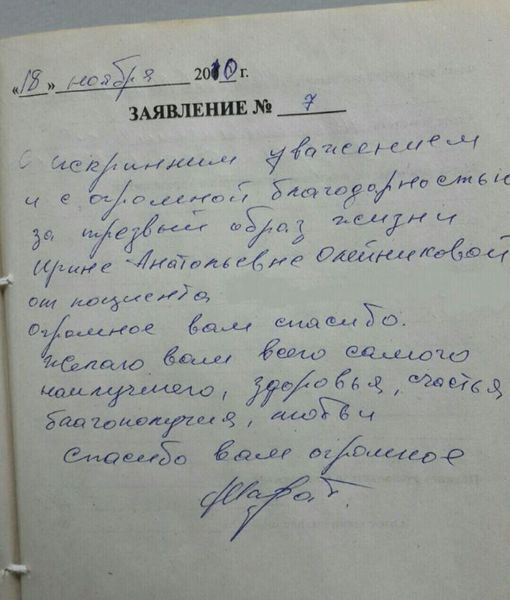 «18» ноября 2010 г.
ЗАЯВЛЕНИЕ № 7
С искринним уважением
и с огромной благодарностью
за трезвый образ жизни
Ирине Анатольевне Олейниковой
от пациента
Огромное вам спасибо.
Желаю вам всего самого
наилучшего, здоровья, счастья
благополучия, любви
Спасибо вам огромное